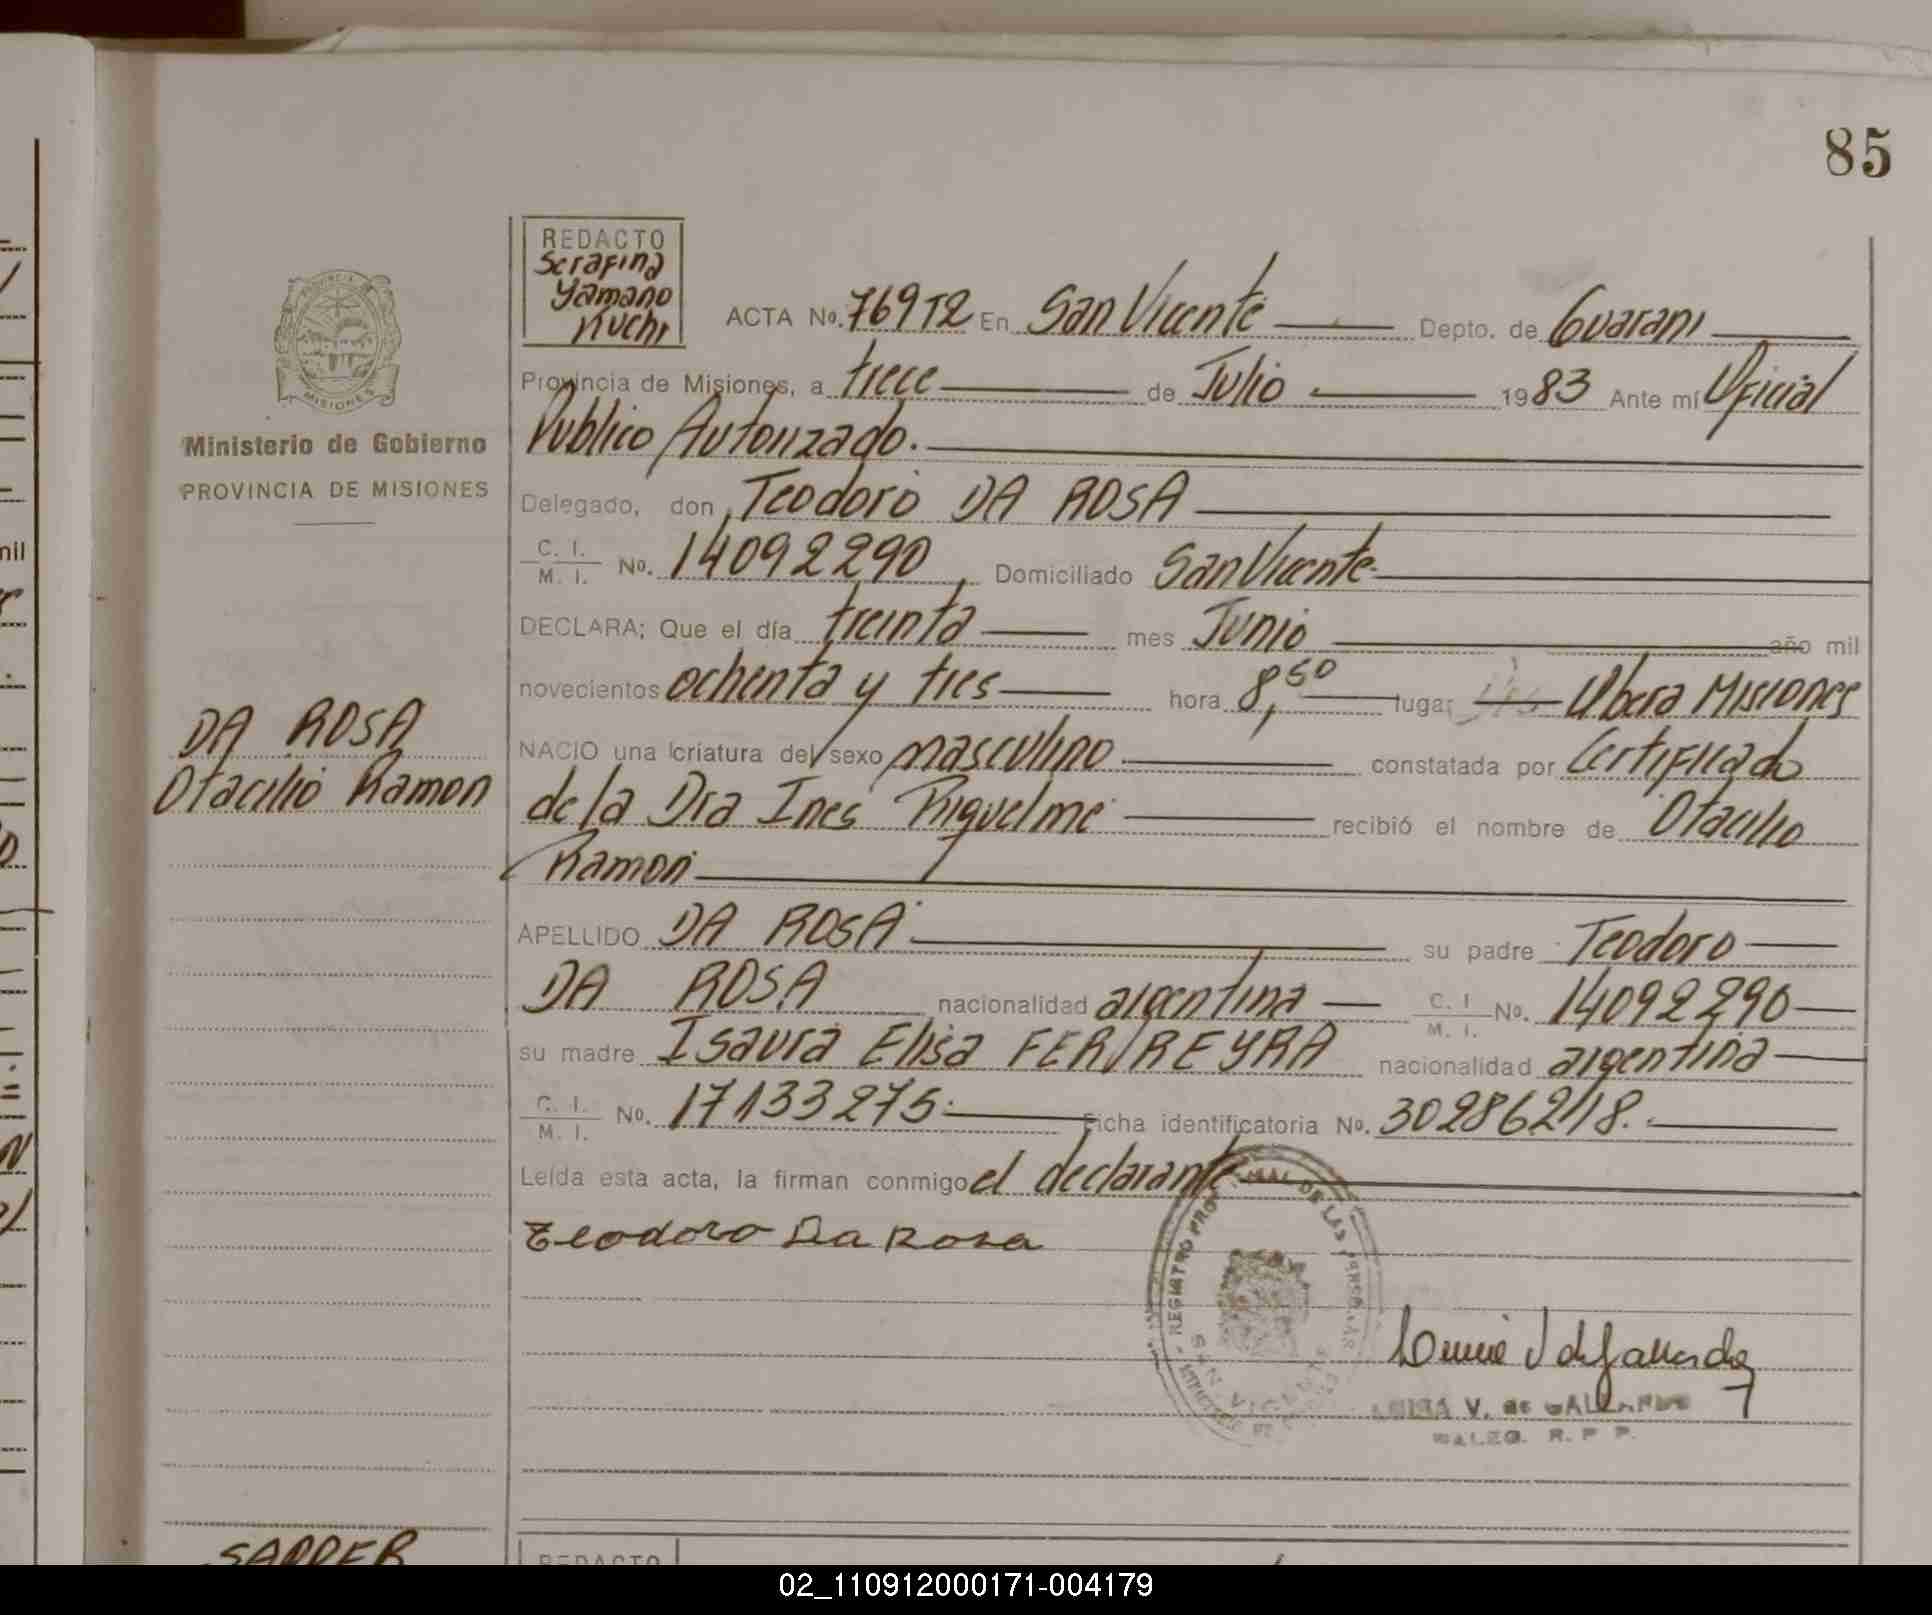 85
REDACTO
Serafina
Yamano
Kuchi
ACTA No. 769T2 En San Vicente Depto. de Guarani
Provincia de Misiones, a trece de Julio 1983 Ante mí Oficial
Publico Autorizado.
Ministerio de Gobierno
PROVINCIA DE MISIONES
MISIONES
Delegado, don Teodoro DA ROSA
C. I. M. I. No. 14092290, Domiciliado San Vicente
DECLARA; Que el día treinta mes Junio año mil
novecientos ochenta y tres hora 8,50 lugar Obera Misiones
DA ROSA
Otacilio Ramon
NACIO una criatura del sexo masculino constatada por Certificado
de la Dra Ines Riquelme recibió el nombre de Otacilio
Ramon
APELLIDO DA ROSA su padre Teodoro
DA ROSA nacionalidad argentina C. I. M. I. No. 14092290
su madre Isaura Elisa FERREYRA nacionalidad argentina
C. I. M. I. No. 17133275. Ficha identificatoria No. 302862118.
Leída esta acta, la firman conmigo el declarante
Teodoro Da Rosa
REGISTRO DE LAS PERSONAS
SAN VICENTE
V. de GALLARDO
R. P. P.
REDACTO
mil
02_110912000171-004179